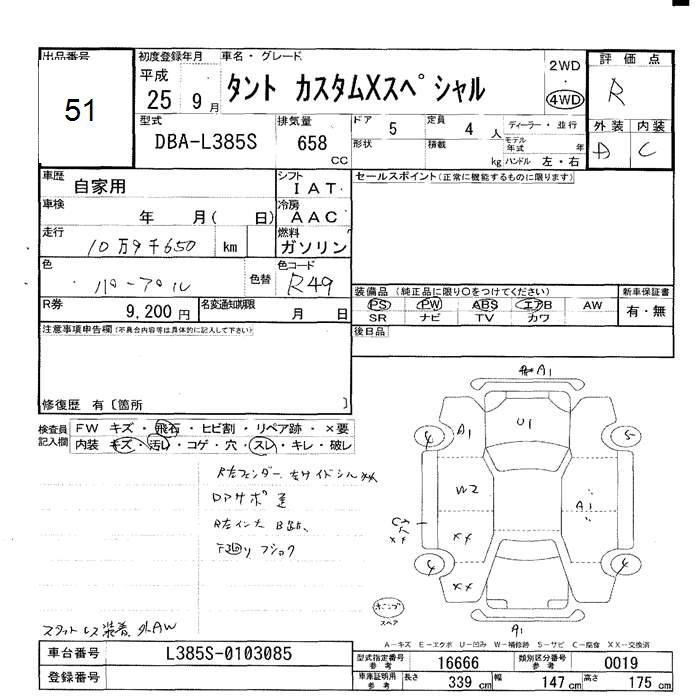 出品番号
51
初度登録年月
平成
25 9月
車名・グレード
タント カスタムXスペシャル
2WD
・
4WD
評価点
R
外装 内装
A C
型式
DBA-L385S
排気量
658
CC
ドア
5
定員
4 人
形状
積載
kg
ディーラー・並行
モデル年式 年
ハンドル 左・右
車歴
自家用
シフト
IAT
車検
年 月( 日)
冷房
AAC
走行
10万9千650 km
燃料
ガソリン
色
パープル
色替
色コード
R49
R券
9,200円
名変通知期限
月 日
セールスポイント(正常に機能するものに限ります)
装備品 (純正品に限り〇をつけてください)
PS PW ABS エアB AW
SR ナビ TV カワ
新車保証書
有・無
後日品
注意事項申告欄(不具合内容等は具体的に記入して下さい)
修復歴 有〔箇所 〕
検査員記入欄
FW キズ・飛石・ヒビ割・リペア跡・×要
内装 キズ・汚い・コゲ・穴・スレ・キレ・破レ
R左フェンダー、左サイドシルXX
R左インナ
下廻りフショク
スタットレス装着、外AW
A1
A1
U1
4
5
W2
A1
XX
XX
XX
4
4
A1
スペア
A-キズ E-エクボ U-凹み W-補修跡 S-サビ C-腐食 XX-交換済
車台番号
L385S-0103085
登録番号
型式指定番号 参考
16666
類別区分番号 参考
0019
車庫証明用 参考
長さ 339 cm 幅 147 cm 高さ 175 cm